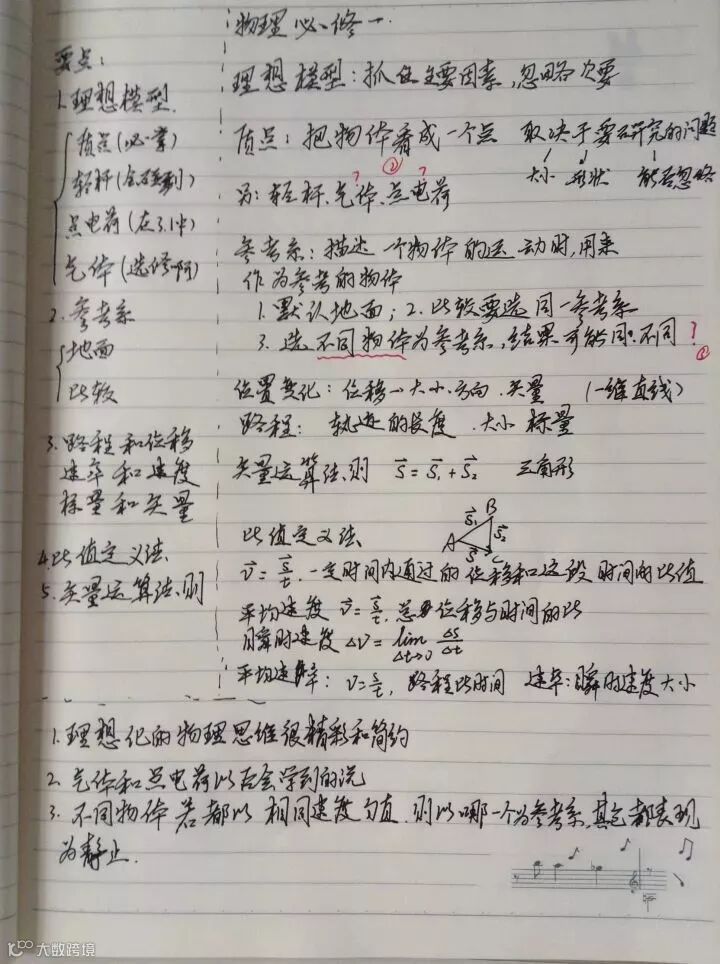 物理必修一
要点:
1.理想模型
质点(必一掌)
轻杆(会碰到)
点电荷(在3.1中)
气体(选修啊)
2.参考系
地面
比较
3.路程和位移
速率和速度
标量和矢量
4.比值定义法
5.矢量运算法则
理想模型:抓住主要因素,忽略次要
质点:把物体看成一个点 取决于要研究的问题
大小 形状 能否忽略
? ② ?
另:轻杆、气体、点电荷
参考系:描述一个物体的运动时,用来
作为参考的物体
1.默认地面;2.比较要选同一参考系
3.选不同物体为参考系,结果可能同.不同?
③
位置变化:位移→大小.方向.矢量 (一维直线)
路程: 轨迹的长度.大小 标量
矢量运算法则 s⃗=s⃗₁+s⃗₂ 三角形
A B C s⃗₁ s⃗₂ s⃗
比值定义法
v⃗=s⃗/t.一定时间内通过的位移和这段时间的比值
平均速度 v⃗=s⃗/t,总位移与时间的比
瞬时速度 Δv=lim Δt→0 Δs/Δt
平均速率:v=s/t,路程比时间 速率:瞬时速度大小
1.理想化的物理思维很精彩和简约
2.气体和点电荷以后会学到的说
3.不同物体若都以相同速度匀直.则以哪一个为参考系,其它都表现
为静止.
大数跨境